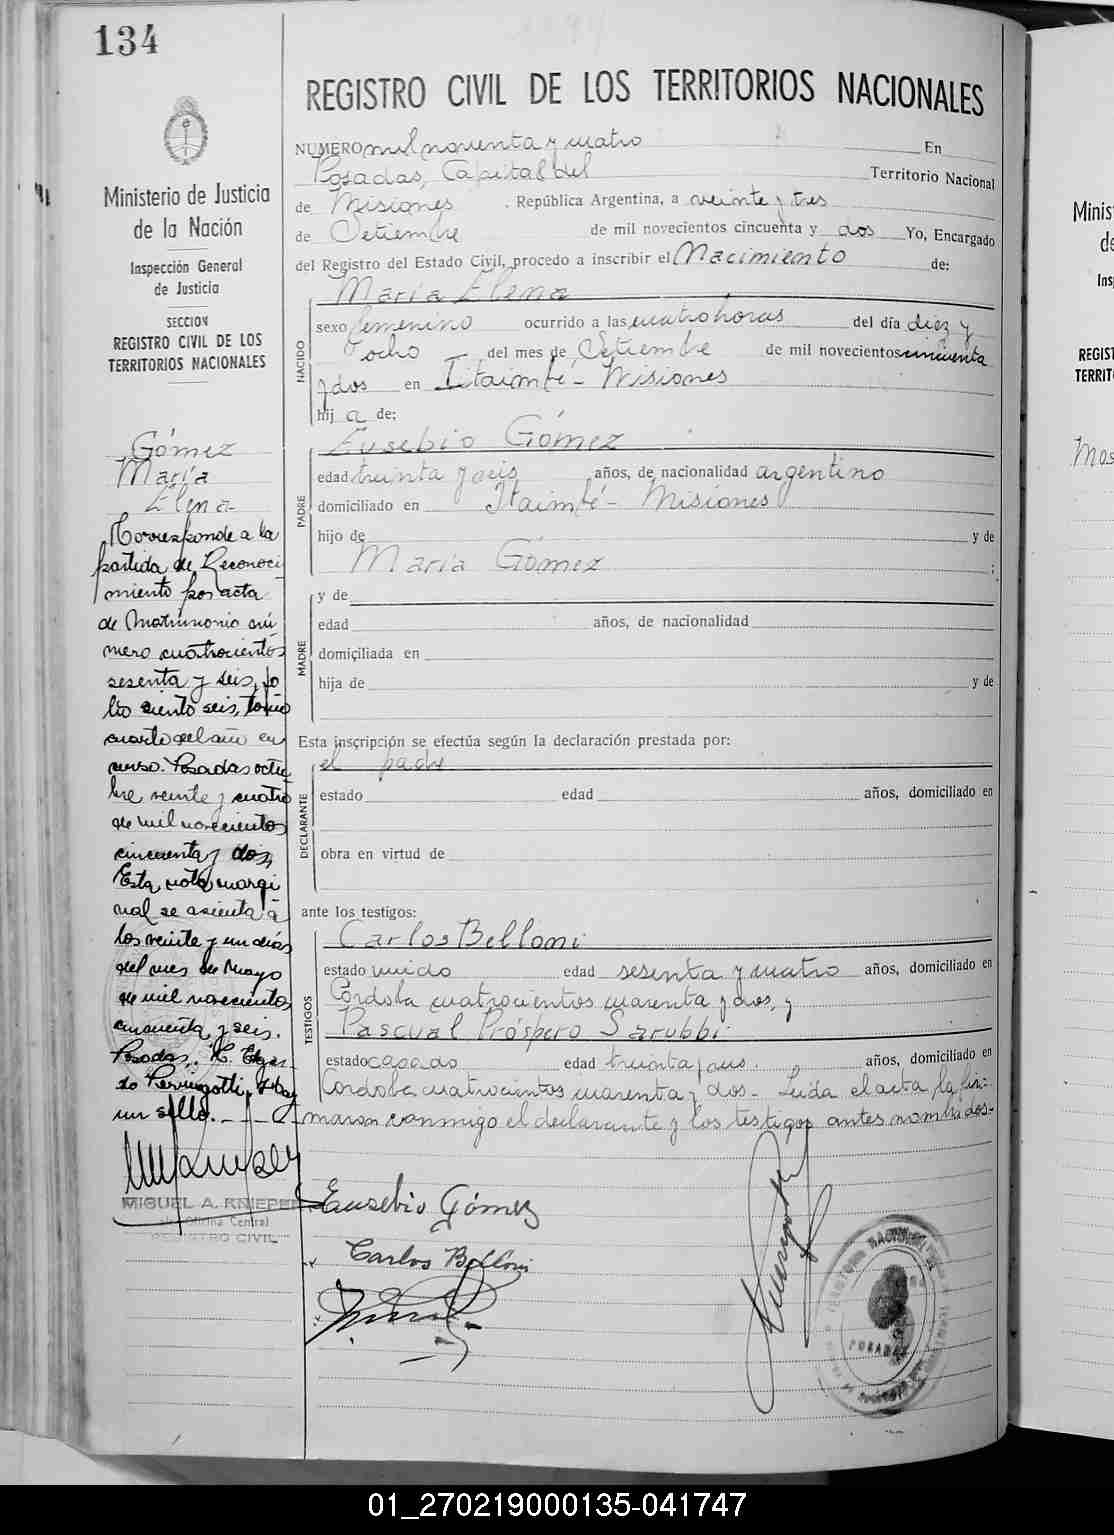 134
Ministerio de Justicia
de la Nación
Inspección General
de Justicia
SECCION
REGISTRO CIVIL DE LOS
TERRITORIOS NACIONALES
Gómez
María
Elena-
Corresponde a la
partida de Reconoci
miento por acta
de Matrimonio nú
mero cuatrocientos
sesenta y seis, fo
lio ciento seis, tomo
cuarto del año en
curso. Posadas octu
bre veinte y cuatro
de mil novecientos
cincuenta y dos,
Esta nota margi
nal se asienta a
los veinte y un días
del mes de Mayo
de mil novecientos
cincuenta y seis.
Posadas,
Hay
un sello.
MIGUEL A. KNIEPER
Oficina Central
REGISTRO CIVIL
REGISTRO CIVIL DE LOS TERRITORIOS NACIONALES
NUMERO mil noventa y cuatro En
Posadas, Capital del Territorio Nacional
de Misiones . República Argentina, a veinte y tres
de Setiembre de mil novecientos cincuenta y dos Yo, Encargado
del Registro del Estado Civil, procedo a inscribir el Nacimiento de:
NACIDO
María Elena
sexo femenino ocurrido a las cuatro horas del día diez y
ocho del mes de Setiembre de mil novecientos cincuenta
y dos en Itaimbé - Misiones
hij a de:
PADRE
Eusebio Gómez
edad treinta y seis años, de nacionalidad argentino
domiciliado en Itaimbé - Misiones
hijo de y de
María Gómez ;
MADRE
y de
edad años, de nacionalidad
domiciliada en
hija de y de
Esta inscripción se efectúa según la declaración prestada por:
DECLARANTE
el padre
estado edad años, domiciliado en
obra en virtud de
ante los testigos:
TESTIGOS
Carlos Belloni
estado viudo edad sesenta y cuatro años, domiciliado en
Córdoba cuatrocientos cuarenta y dos, y
Pascual Próspero Sarubbi
estado casado edad treinta y años, domiciliado en
Córdoba cuatrocientos cuarenta y dos- Leida el acta, la fir-
maron conmigo el declarante y los testigos antes nombrados-
Eusebio Gómez
Carlos Belloni
POSADAS
Minis
de
Ins
REGIST
TERRIT
01_270219000135-041747